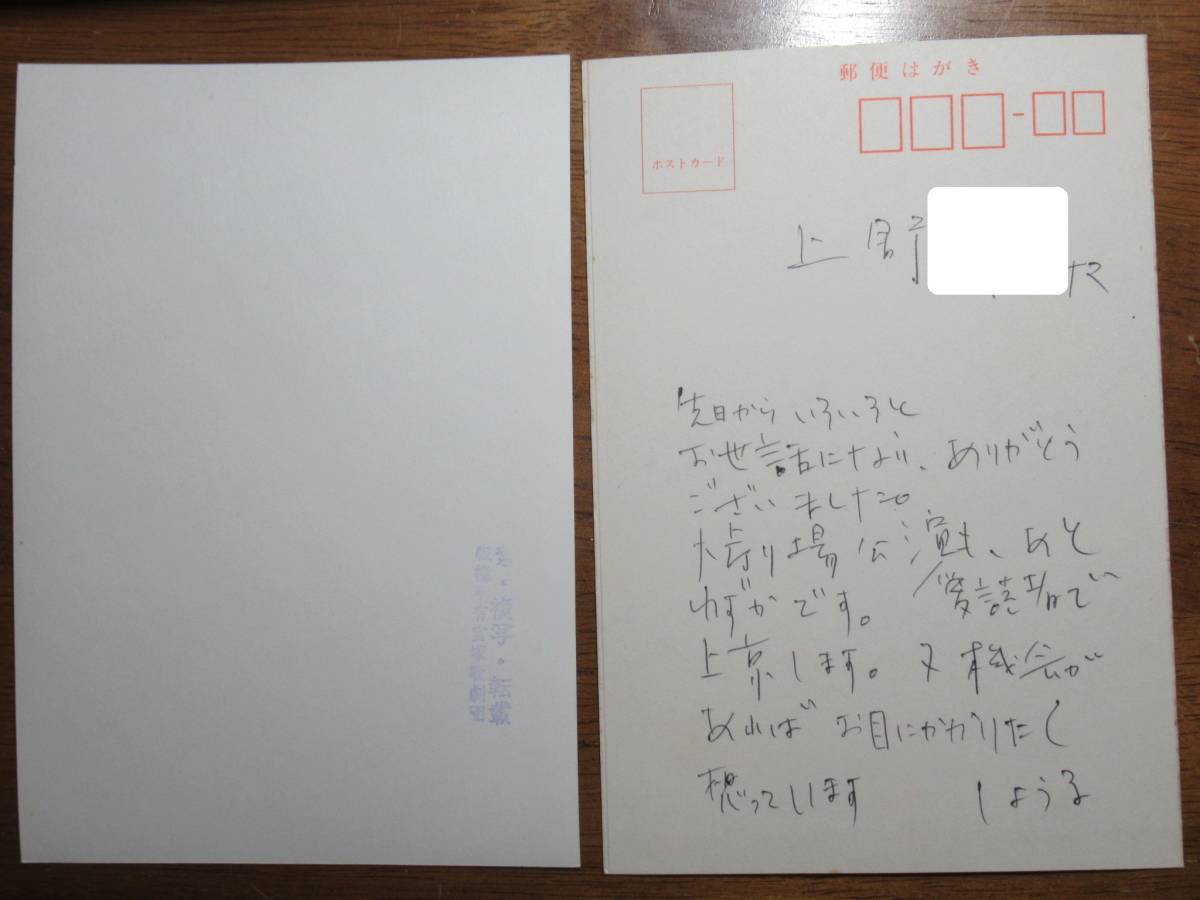 禁・複写・転載
版権所有宝塚歌劇団
郵便はがき
ポストカード
上
先日からいろいろと
お世話になり、ありがとう
ございました。
大劇場公演も、あと
わずかです。
上京します。又機会が
あればお目にかかりたく
想っています しょうる